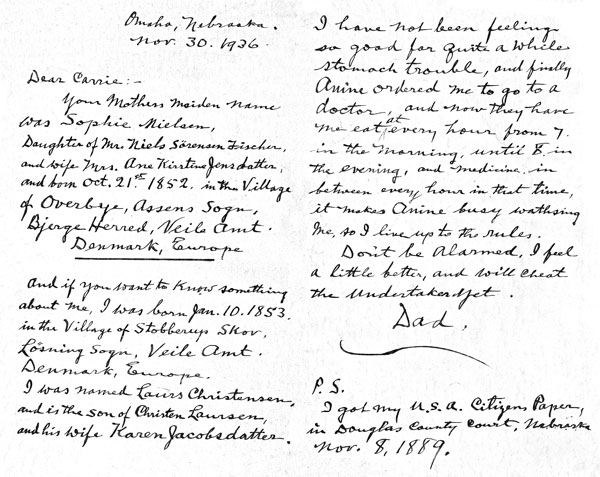 Omaha, Nebraska.
Nov. 30. 1926.
Dear Carrie:-
Your Mothers maiden name
was Sophie Nielsen,
Daughter of Mr. Niels Sörensen Fischer,
and wife Mrs. Ane Kirstine Jensdatter,
and born Oct. 21.st 1852. in the Village
of Overbye, Assens Sogn,
Bjerge Herred, Veile Amt.
Denmark, Europe
And if you want to know something
about me, I was born Jan. 10. 1853.
in the Village of Stobberup Skov,
Lösning Sogn, Veile Amt.
Denmark, Europe.
I was named Laurs Christensen,
and is the son of Christen Laursen,
and his wife Karen Jacobsdatter.
I have not been feeling
so good for quite a while
stomach trouble, and finally
Anine ordered me to go to a
doctor, and now they have
me eat at every hour from 7.
in the morning, until 8. in
the evening, and medicine in
between every hour in that time,
it makes Anine busy wathsing
me, so I live up to the rules.
Don't be Alarmed, I feel
a little better, and will cheat
the Undertaker yet.
Dad.
P. S.
I got my U.S.A. Citizens Paper,
in Douglas County Court, Nebraska
Nov. 8, 1889.